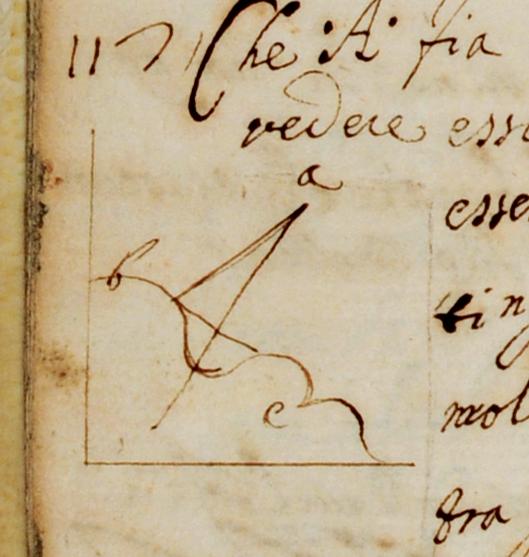 117 Che ·A· sia
vedere esse
a
esse
b
ting
mol
c
fra